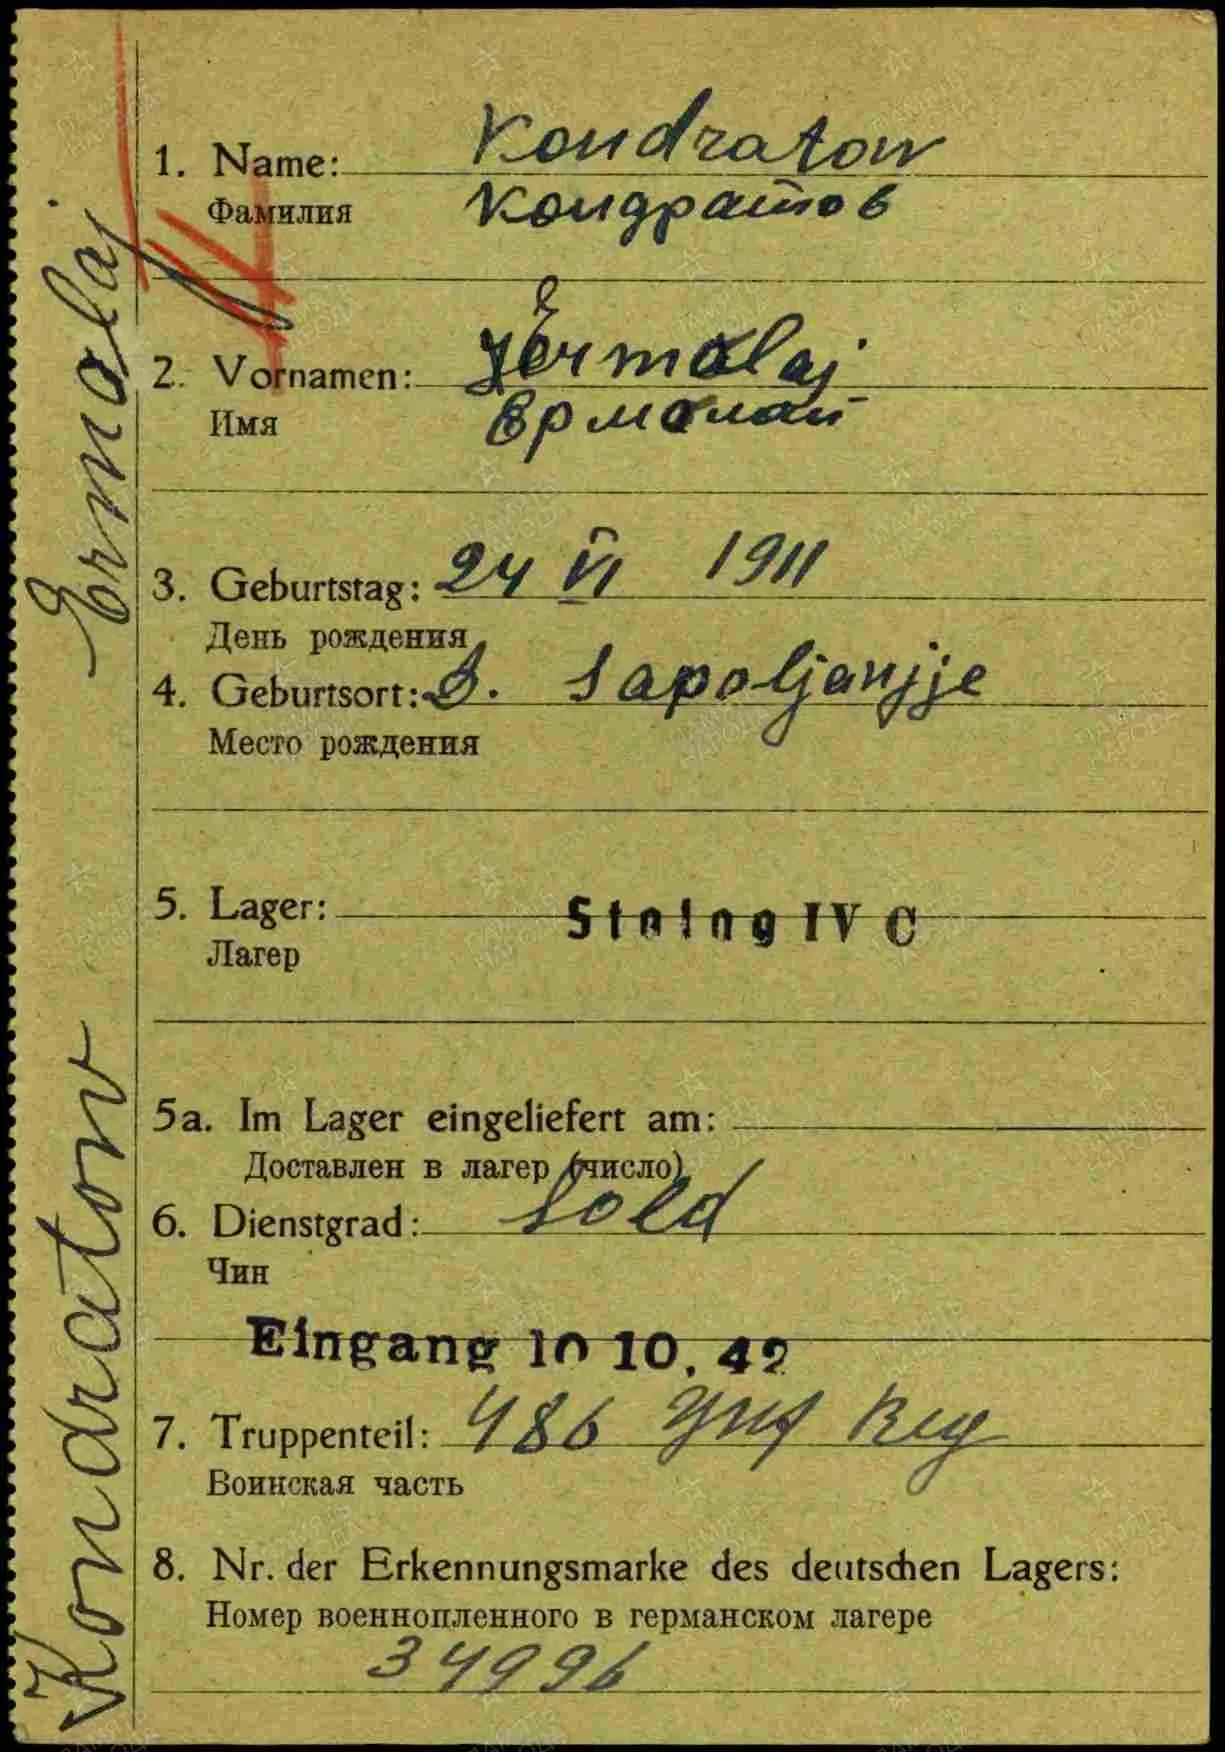 1. Name: Kondratow
Фамилия Кондратов
2. Vornamen: Jermolaj
Имя Ермолай
3. Geburtstag: 24 VI 1911
День рождения
4. Geburtsort: D. Sapoljanje
Место рождения
5. Lager: Stalag IV C
Лагер
5a. Im Lager eingeliefert am:
Доставлен в лагер (число)
6. Dienstgrad: Sold
Чин
Eingang 10 10. 42
7. Truppenteil: 486 Inf Reg
Воинская часть
8. Nr. der Erkennungsmarke des deutschen Lagers:
Номер военнопленного в германском лагере
34996
Kondratow Ermolaj